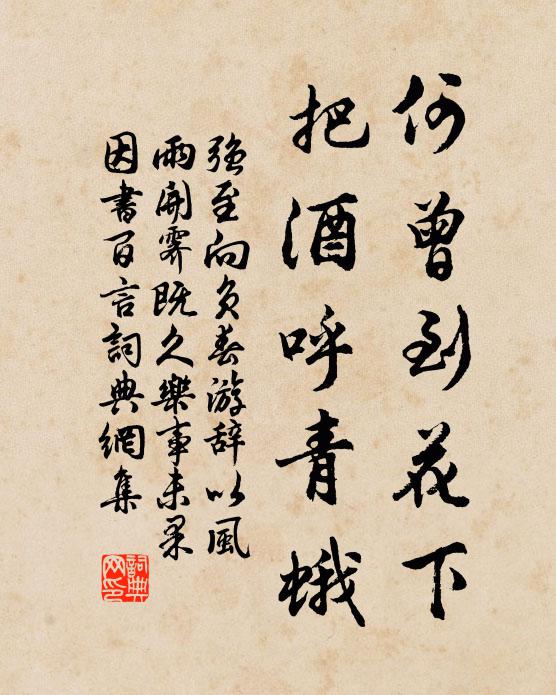 何曾到花下
把酒呼青蛾
強至向負春游辞以風
雨開霽既久樂事未果
因書百言詞典網集
詞典
网印